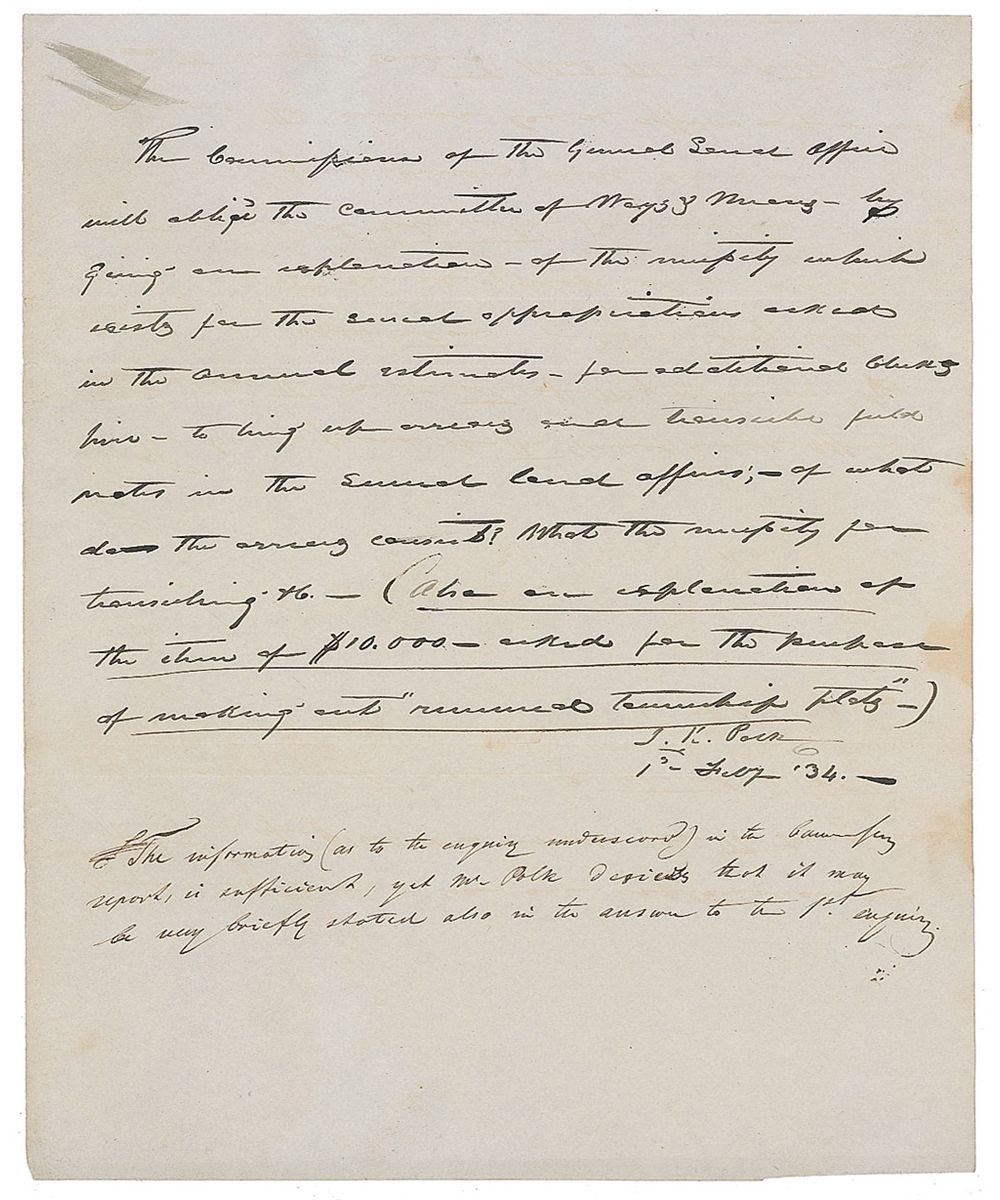 The Commissioner of the General Land Office
will oblige the committee of Ways & Means – by
giving an explanation – of the necessity which
exists for the several appropriations asked
in the annual estimates – for additional Clerks
hire – to bring up arrears and transcribe field
notes in the General land offices; – of what
does the arrears consist? What the necessity for
transcribing &c. – (Also an explanation of
the item of $10.000 – asked for the purpose
of making out "renewed township plats" –)
J. K. Polk
1st Feby '34. –
The information (as to the enquiry underscored) in the Commrs
report, is sufficient, yet Mr Polk desires that it may
be very briefly stated also in the answer to the 1st enquiry.